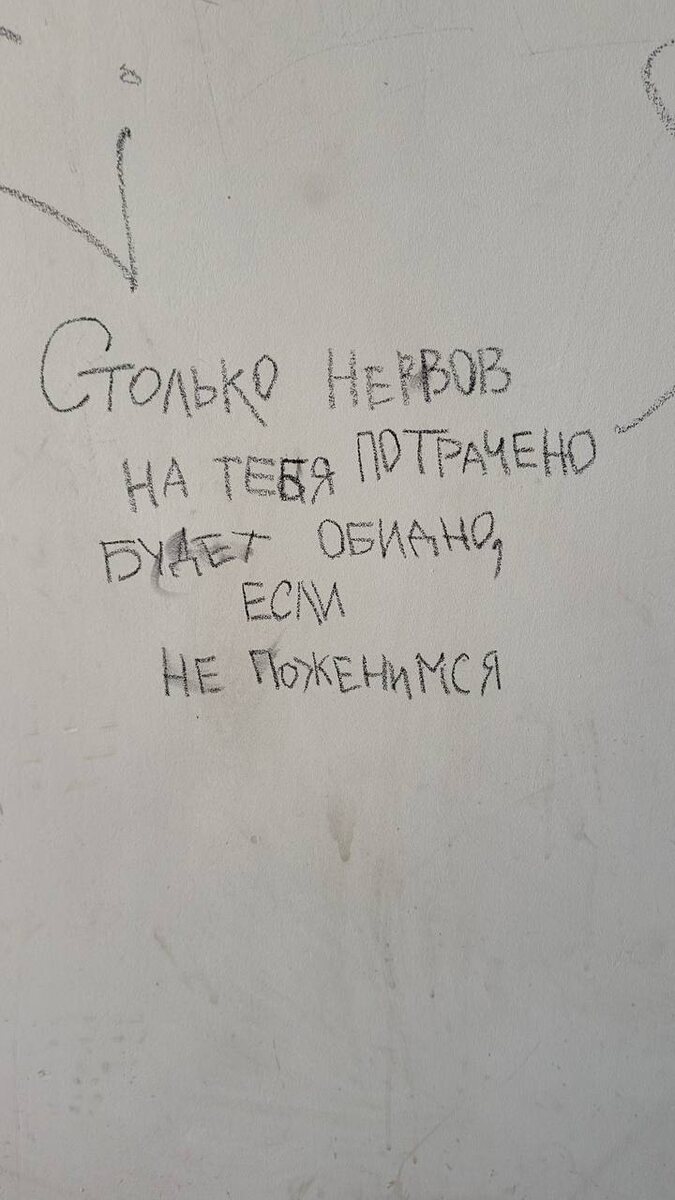 Столько нервов
на тебя потрачено
будет обидно,
если
не поженимся